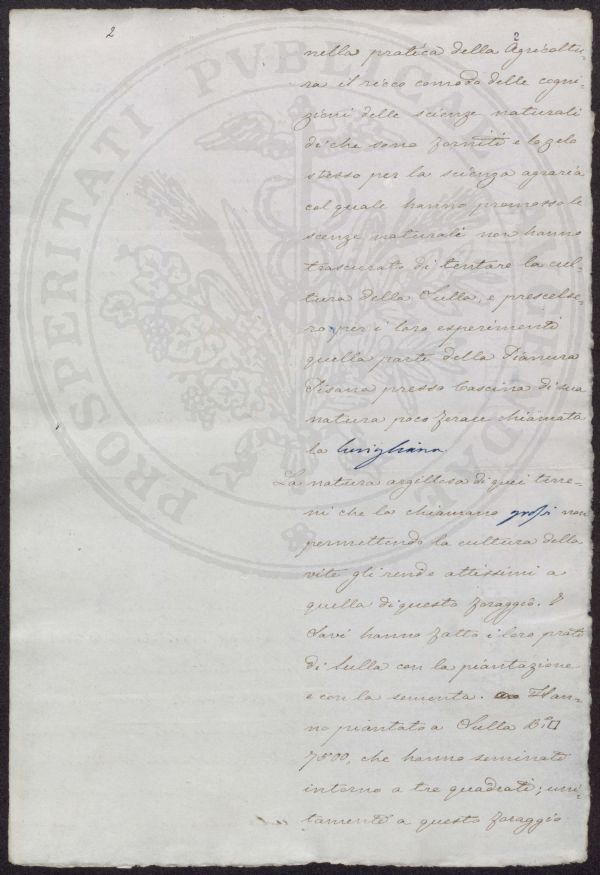 2
2
nella pratica della Agricoltu-
ra il ricco comodo delle cogni-
zioni delle scienze naturali
di che sono forniti e lo zelo
stesso per la scienza agraria
col quale hanno promosso le
scenze naturali non hanno
trascurato di tentare la cul-
tura della Sulla, e prescelse-
ro per i loro esperimenti
quella parte della Pianura
Pisana presso Cascina di sua
natura poco ferace chiamata
la
La natura argillosa di quei terre-
ni che la chiamano grossi non
permettendo la cultura della
vite gli rende attissimi a
quella di questo foraggio. I
Savi hanno fatto i loro prati
di Sulla con la piantazione
e con la sementa. Han-
no piantato a Sulla
7500, che hanno seminati
intorno a tre quadrati; uni-
tamente a questo foraggio
PROSPERITATI PVBLICAE AVGENDAE